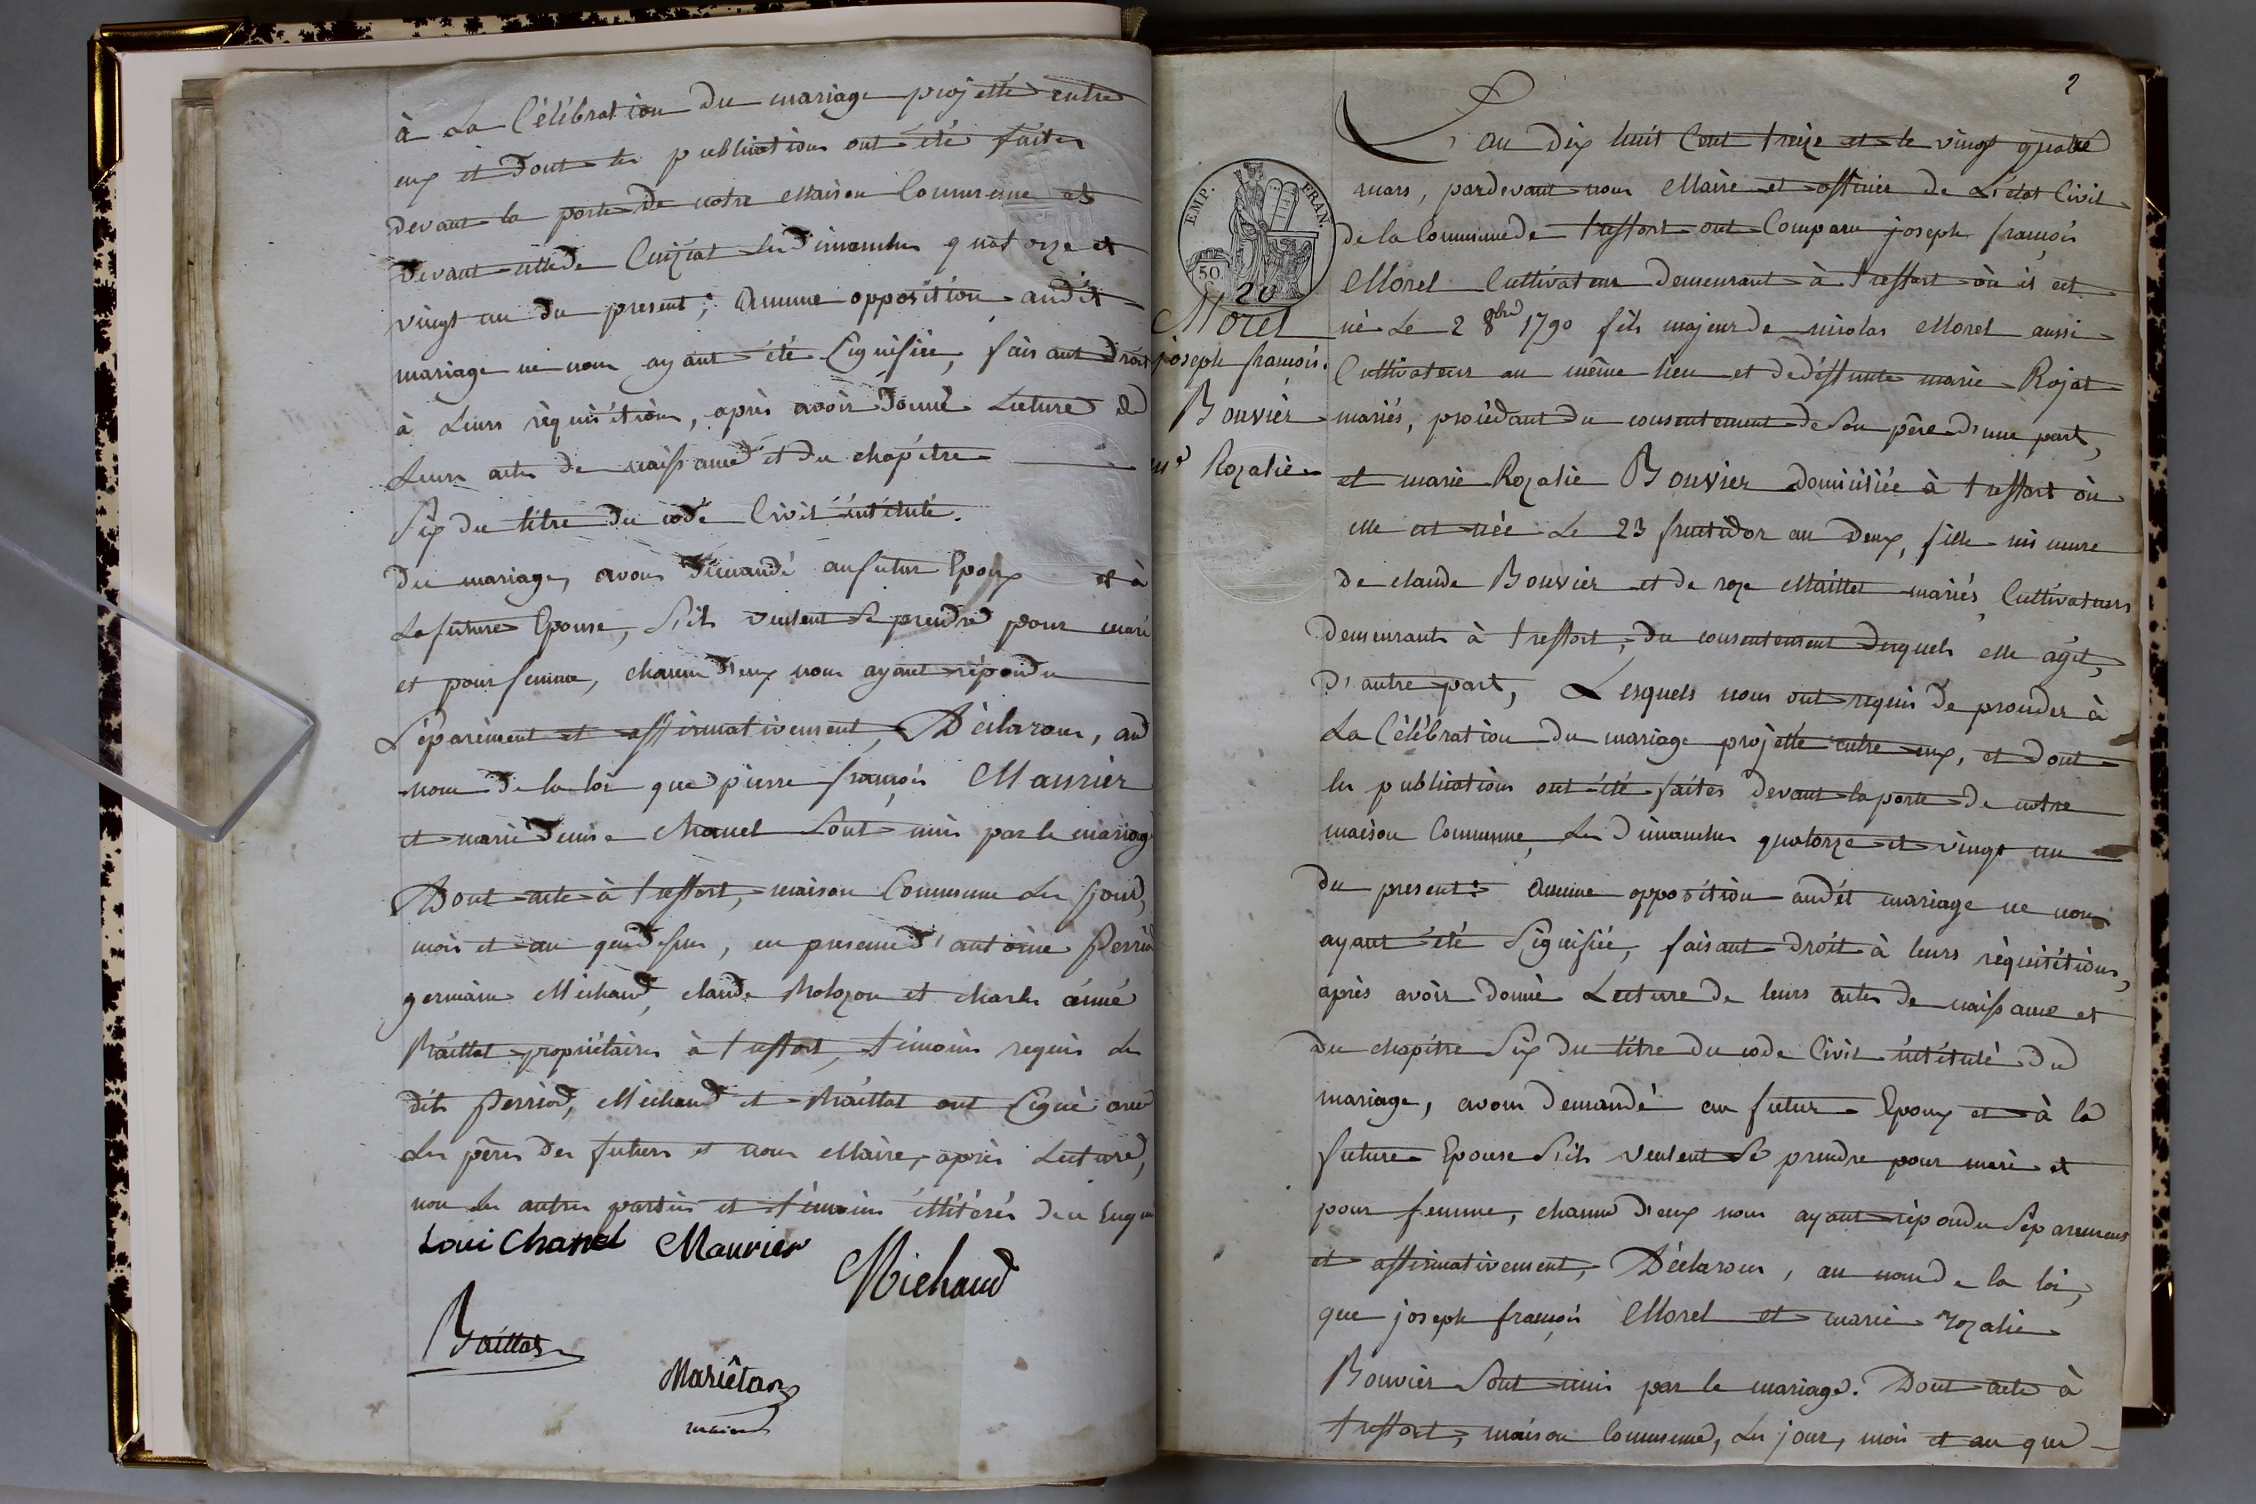 à La Célébration du mariage projetté entre
eux et dont les publications ont été faites
devant la porte de notre maison Commune et
devant celle de Cuiziat les dimanches quatorze et
vingt un du present; Aucune opposition audit
mariage ne nous ayant été Signifiée, faisant droit
à Leurs réquisitions, après avoir donné Lecture de
Leurs actes de naissance et du chapitre
Six du titre du code Civil intitulé.
du mariage, avons demandé au futur Epoux et à
La future Epouse, S'ils veulent Se prendre pour mari
et pour femme, chacun d'eux nous ayant répondu
Séparement et affirmativement, Déclarons, au
nom de la loi que pierre françois Maurier
et marie denise Chanel Sont unis par le mariage
Dont acte à treffort, maison Commune Les jour,
mois et an que dessus, en presence d'antoine Perrin
germain Michaud, claude Molozon et charles aimé
Baillat propriétaires à treffort, témoins requis Les
dits Perriod, Michaud et Baillat ont Signé avec
Les pères des futurs et nous Maire, après Lecture,
non Les autres parties et témoins illitérés de ce Enquis
Loui Chanel Maurier
Michaud
Baillat
Mariétan
maire
2
L'an dix huit Cent treize et le vingt quatre
mars, pardevant nous Maire et officier de L'état Civil
de la Commune de treffort ont Comparu joseph françois
Morel Cultivateur demeurant à treffort où il est
né Le 2 8bre 1790 fils majeur de nicolas Morel aussi
Cultivateur au même lieu et de défunte marie Rojat
mariés, procédant du consentement de Son père d'une part,
et marie Rozalie Bouvier domiciliée à treffort où
elle est née Le 23 fructidor an Deux, fille mineure
de claude Bouvier et de roze Maillet mariés Cultivateurs
demeurants à treffort, du consentement desquels elle agit,
d'autre part, Lesquels nous ont requis de proceder à
La Célébration du mariage projetté entre eux, et dont
les publications ont été faites devant la porte de notre
maison Commune, Les dimanches quatorze et vingt un
du present: Aucune opposition audit mariage ne nous
ayant été Signifiée, faisant droit à leurs réquisitions,
après avoir donné Lecture de leurs actes de naissance et
du chapitre Six du titre du code Civil intitulé du
mariage, avons demandé au futur Epoux et à la
future Epouse S'ils veulent Se prendre pour mari et
pour femme, chacun d'eux nous ayant répondu Séparement
et affirmativement, Déclarons, au nom de la loi,
que joseph françois Morel et marie rozalie
Bouvier Sont unis par le mariage. Dont acte à
treffort, maison Commune, Les jour, mois et an que
EMP. FRAN.
50
C.
20
Morel
joseph françois.
Bouvier
me Rozalie